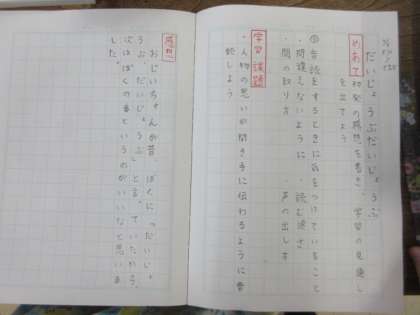 だいじょうぶだいじょうぶ
めあて
初発の感想を書き、学習の見通し
を立てよう
音読をするときに気をつけていること
・間違えないように ・読む速さ
・間の取り方 ・声の出し方
学習課題
・人物の思いが聞き手に伝わるように音
読しよう
感想
おじいちゃんが昔、ぼくに「だいじょ
うぶ、だいじょうぶ」と言っていたから、
次はぼくの番というのがいいなと思いま
した。